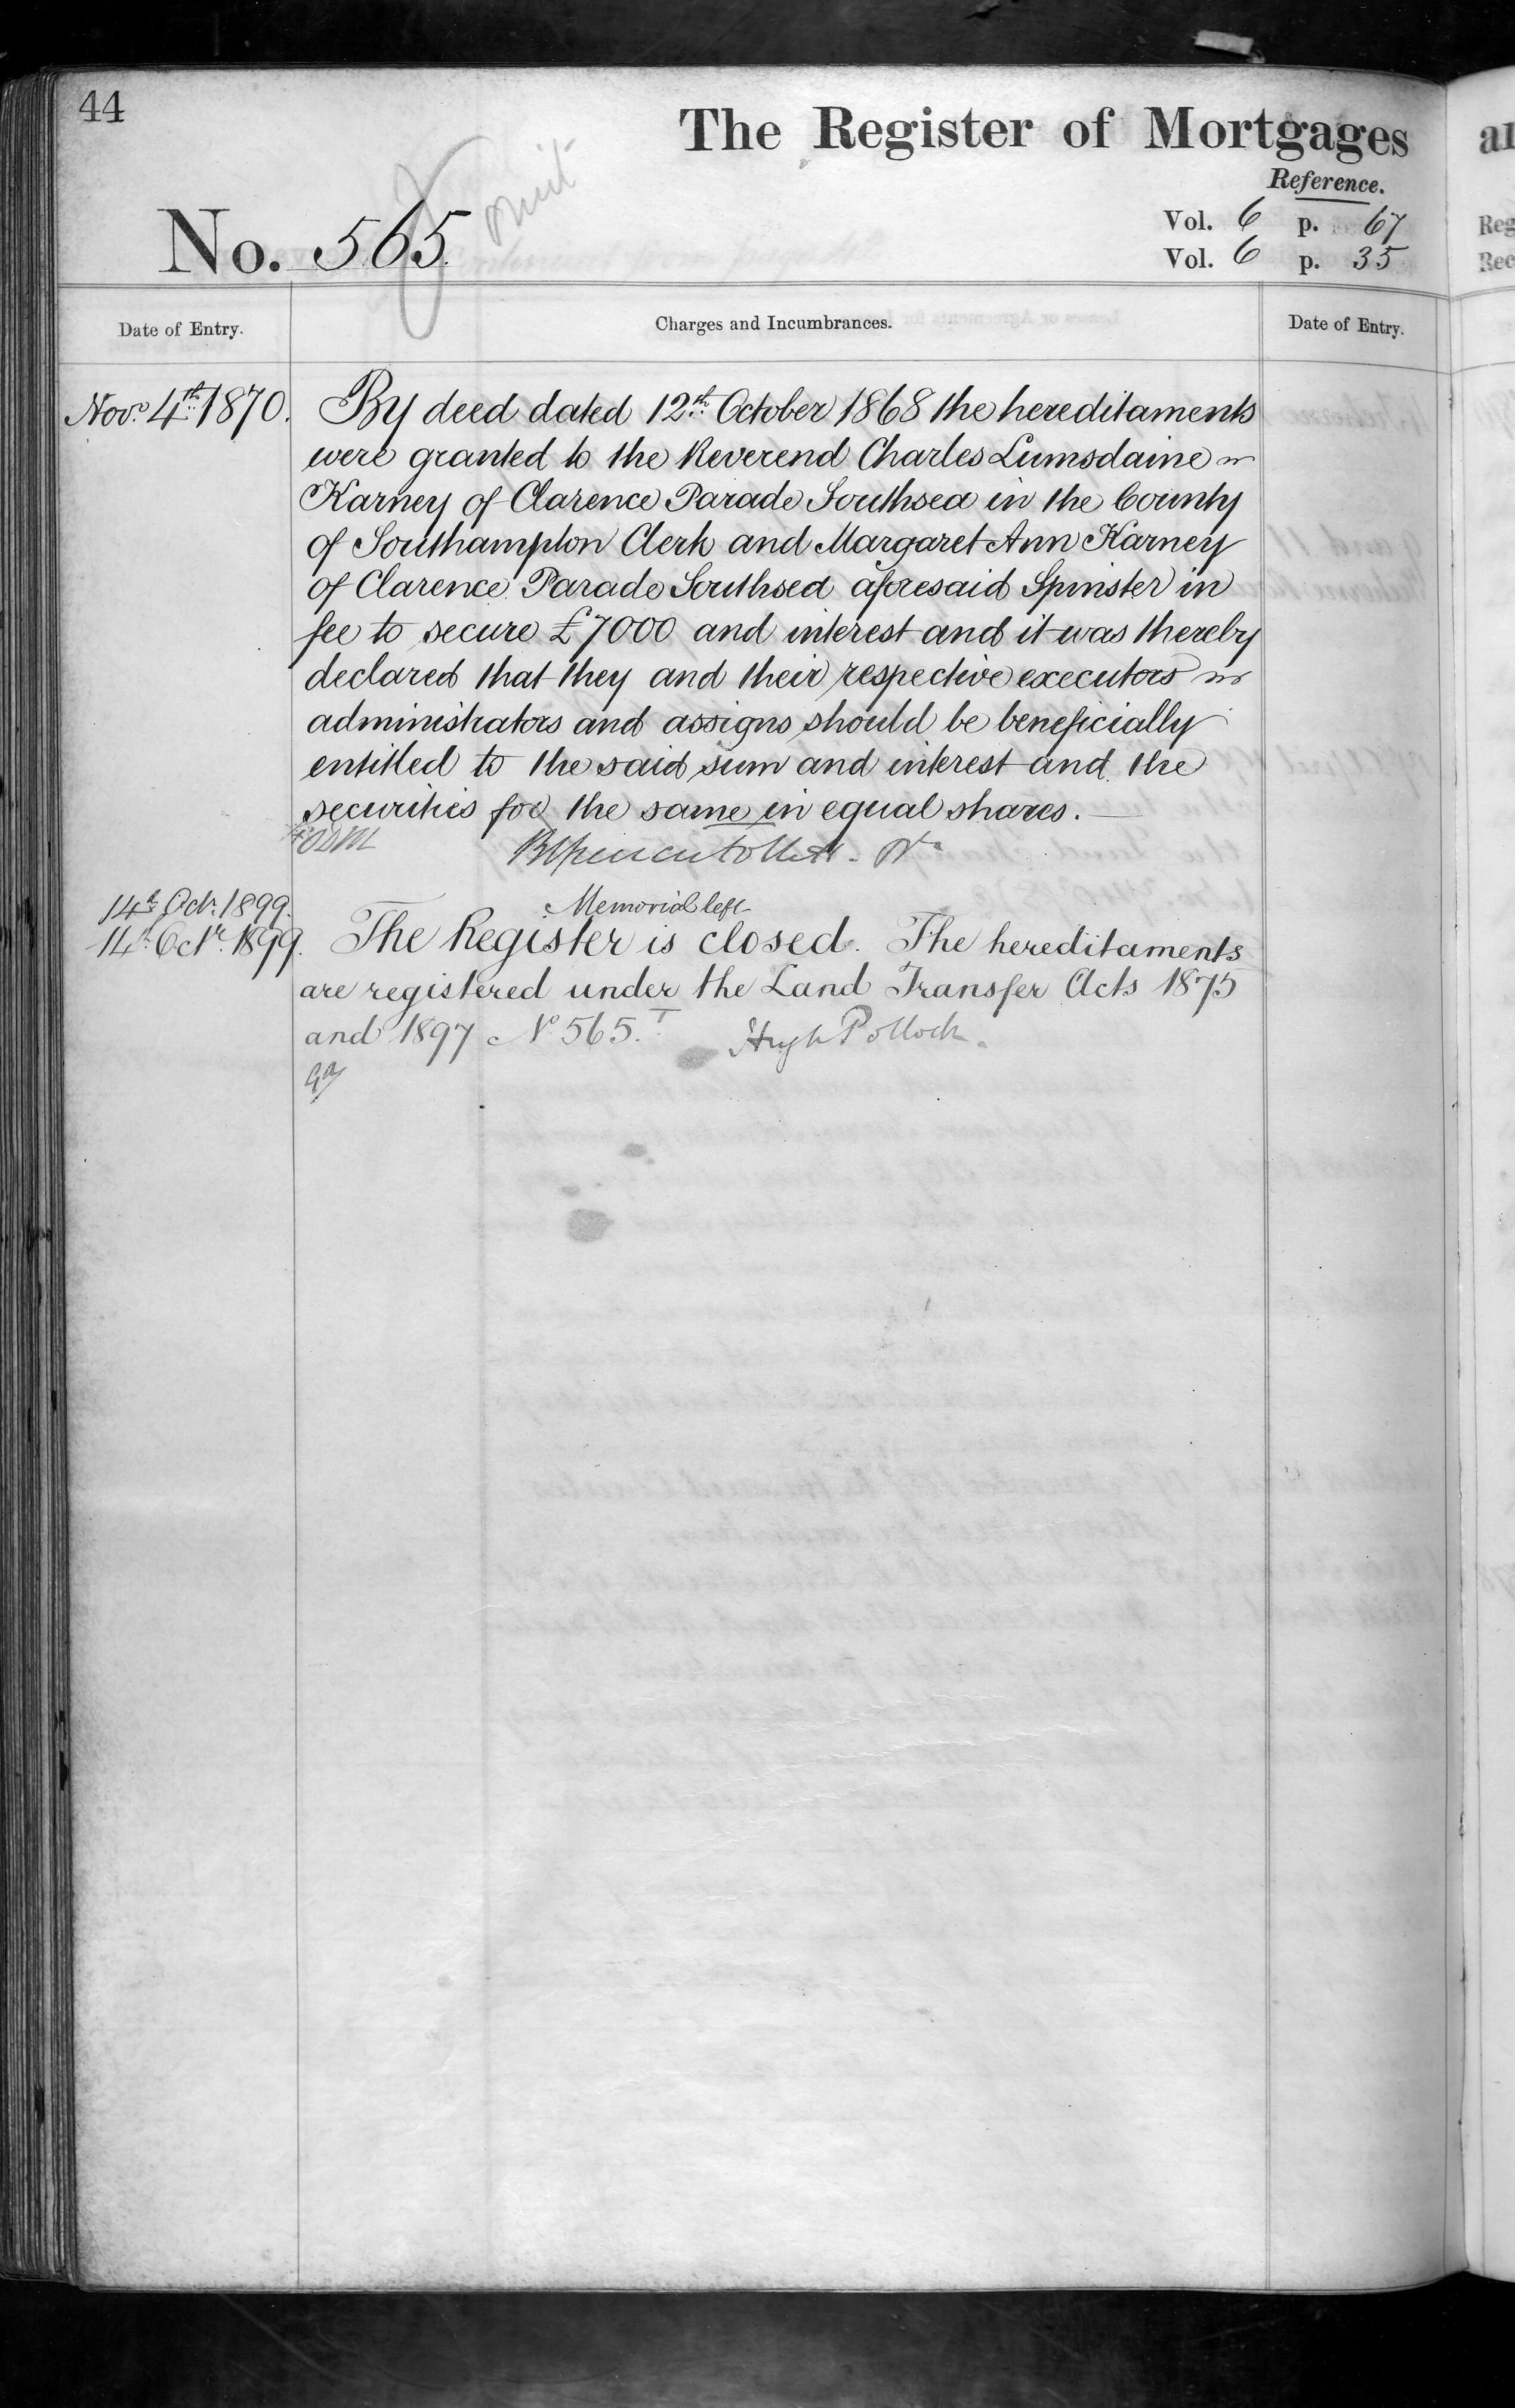 44
The Register of Mortgages
Reference.
omit
No. 565.
Vol. 6 p. 67
Vol. 6 p. 35
Date of Entry.
Charges and Incumbrances.
Date of Entry.
Novr 4th 1870.
By deed dated 12th October 1868 the hereditaments
were granted to the Reverend Charles Lumsdaine
Karney of Clarence Parade Southsea in the County
of Southampton Clerk and Margaret Ann Karney
of Clarence Parade Southsea aforesaid Spinster in
fee to secure £7000 and interest and it was thereby
declared that they and their respective executors
administrators and assigns should be beneficially
entitled to the said sum and interest and the
securities for the same in equal shares.
14th Octr. 1899.
Memorial left
14th Octr. 1899.
The Register is closed. The hereditaments
are registered under the Land Transfer Acts 1875
and 1897 No 565.T Hugh Pollock.